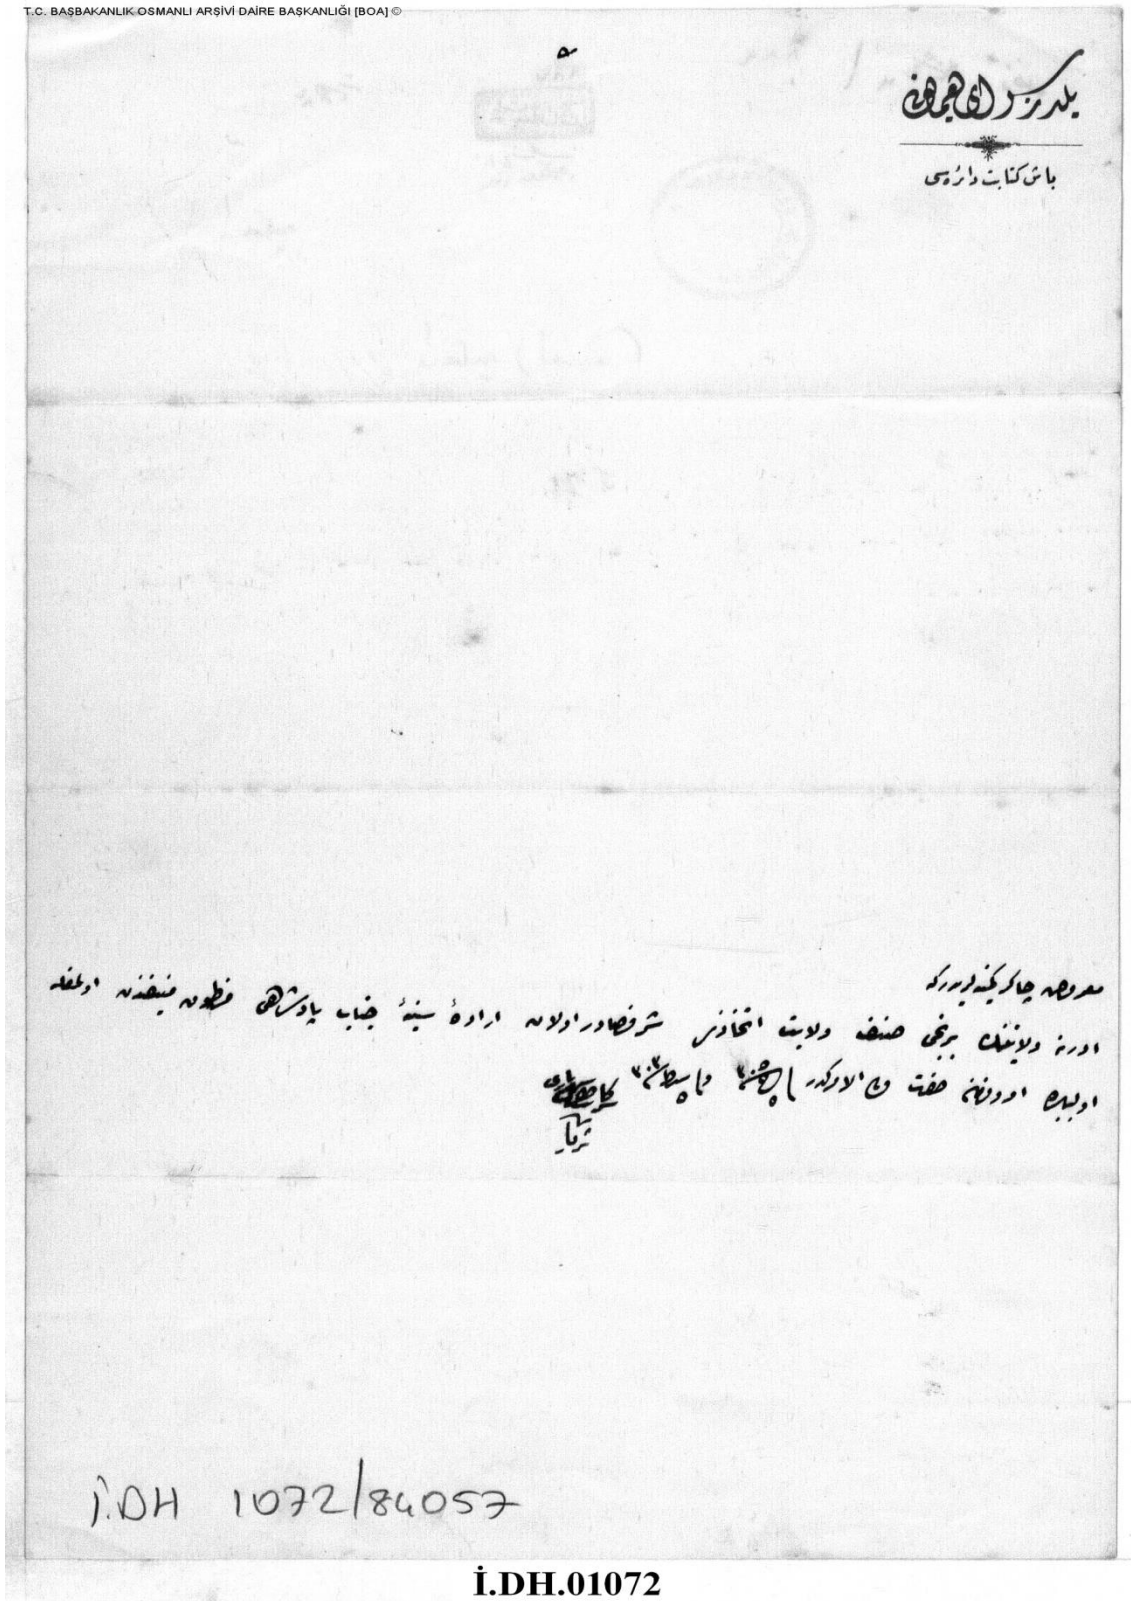 T.C. BAŞBAKANLIK OSMANLI ARŞİVİ DAİRE BAŞKANLIĞI [BOA] ©
يلدز سراى همايونى
باش كتابت دائره‌سى
معروض چاكر كمينه‌لريدركه
ادرنه ولايتنك برنجى صنف ولايت اتخاذى شرفصادر اولان ارادهٔ سنيهٔ جناب پادشاهى منطوق منيفندن اولمغله
اولبابده امر و فرمان حضرت ولى الامركدر
ثريا
İ.DH 1072/84057
İ.DH.01072